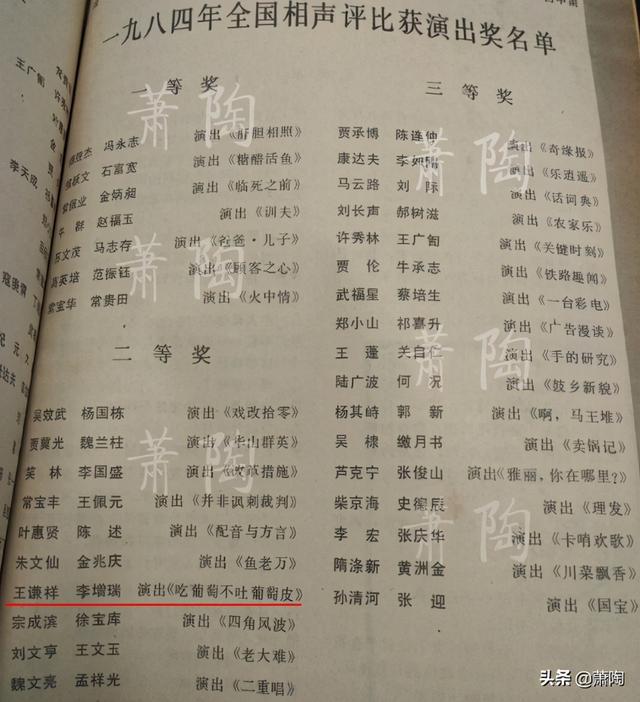 一九八四年全国相声评比获演出奖名单
一等奖
冯永志 演出《肝胆相照》
石富宽 演出《糖醋活鱼》
金炳昶 演出《临死之前》
牛群 赵福玉 演出《训夫》
苏文茂 马志存 演出《爸爸·儿子》
高英培 范振钰 演出《顾客之心》
常宝华 常贵田 演出《火中情》
二等奖
吴效武 杨国栋 演出《戏改拾零》
贾冀光 魏兰柱 演出《华山群英》
笑林 李国盛 演出《改革措施》
常宝丰 王佩元 演出《并非讽刺裁判》
叶惠贤 陈述 演出《配音与方言》
朱文仙 金兆庆 演出《鱼老万》
王谦祥 李增瑞 演出《吃葡萄不吐葡萄皮》
宗成滨 徐宝库 演出《四角风波》
刘文亨 王文玉 演出《老大难》
魏文亮 孟祥光 演出《二重唱》
三等奖
贾承博 陈连仲 演出《奇缘报》
康达夫 李如刚 演出《乐逍遥》
马云路 刘际 演出《话词典》
刘长声 郝树滋 演出《农家乐》
许秀林 王广訇 演出《关键时刻》
贾伦 牛承志 演出《铁路趣闻》
武福星 蔡培生 演出《一台彩电》
郑小山 祁喜升 演出《广告漫谈》
王蓬 关自仁 演出《手的研究》
陆广波 何况 演出《鼓乡新貌》
杨其峙 郭新 演出《啊,马王堆》
吴棣 缴月书 演出《卖锅记》
芦克宁 张俊山 演出《雅丽,你在哪里?》
柴京海 史 演出《理发》
李宏 张庆华 演出《卡哨欢歌》
隋涤新 黄洲金 演出《川菜飘香》
孙清河 张迎 演出《国宝》
王广訇
李天成
寇庚儒
纪元
萧陶
萧陶
萧陶
萧陶
萧陶
萧陶
头条 @萧陶